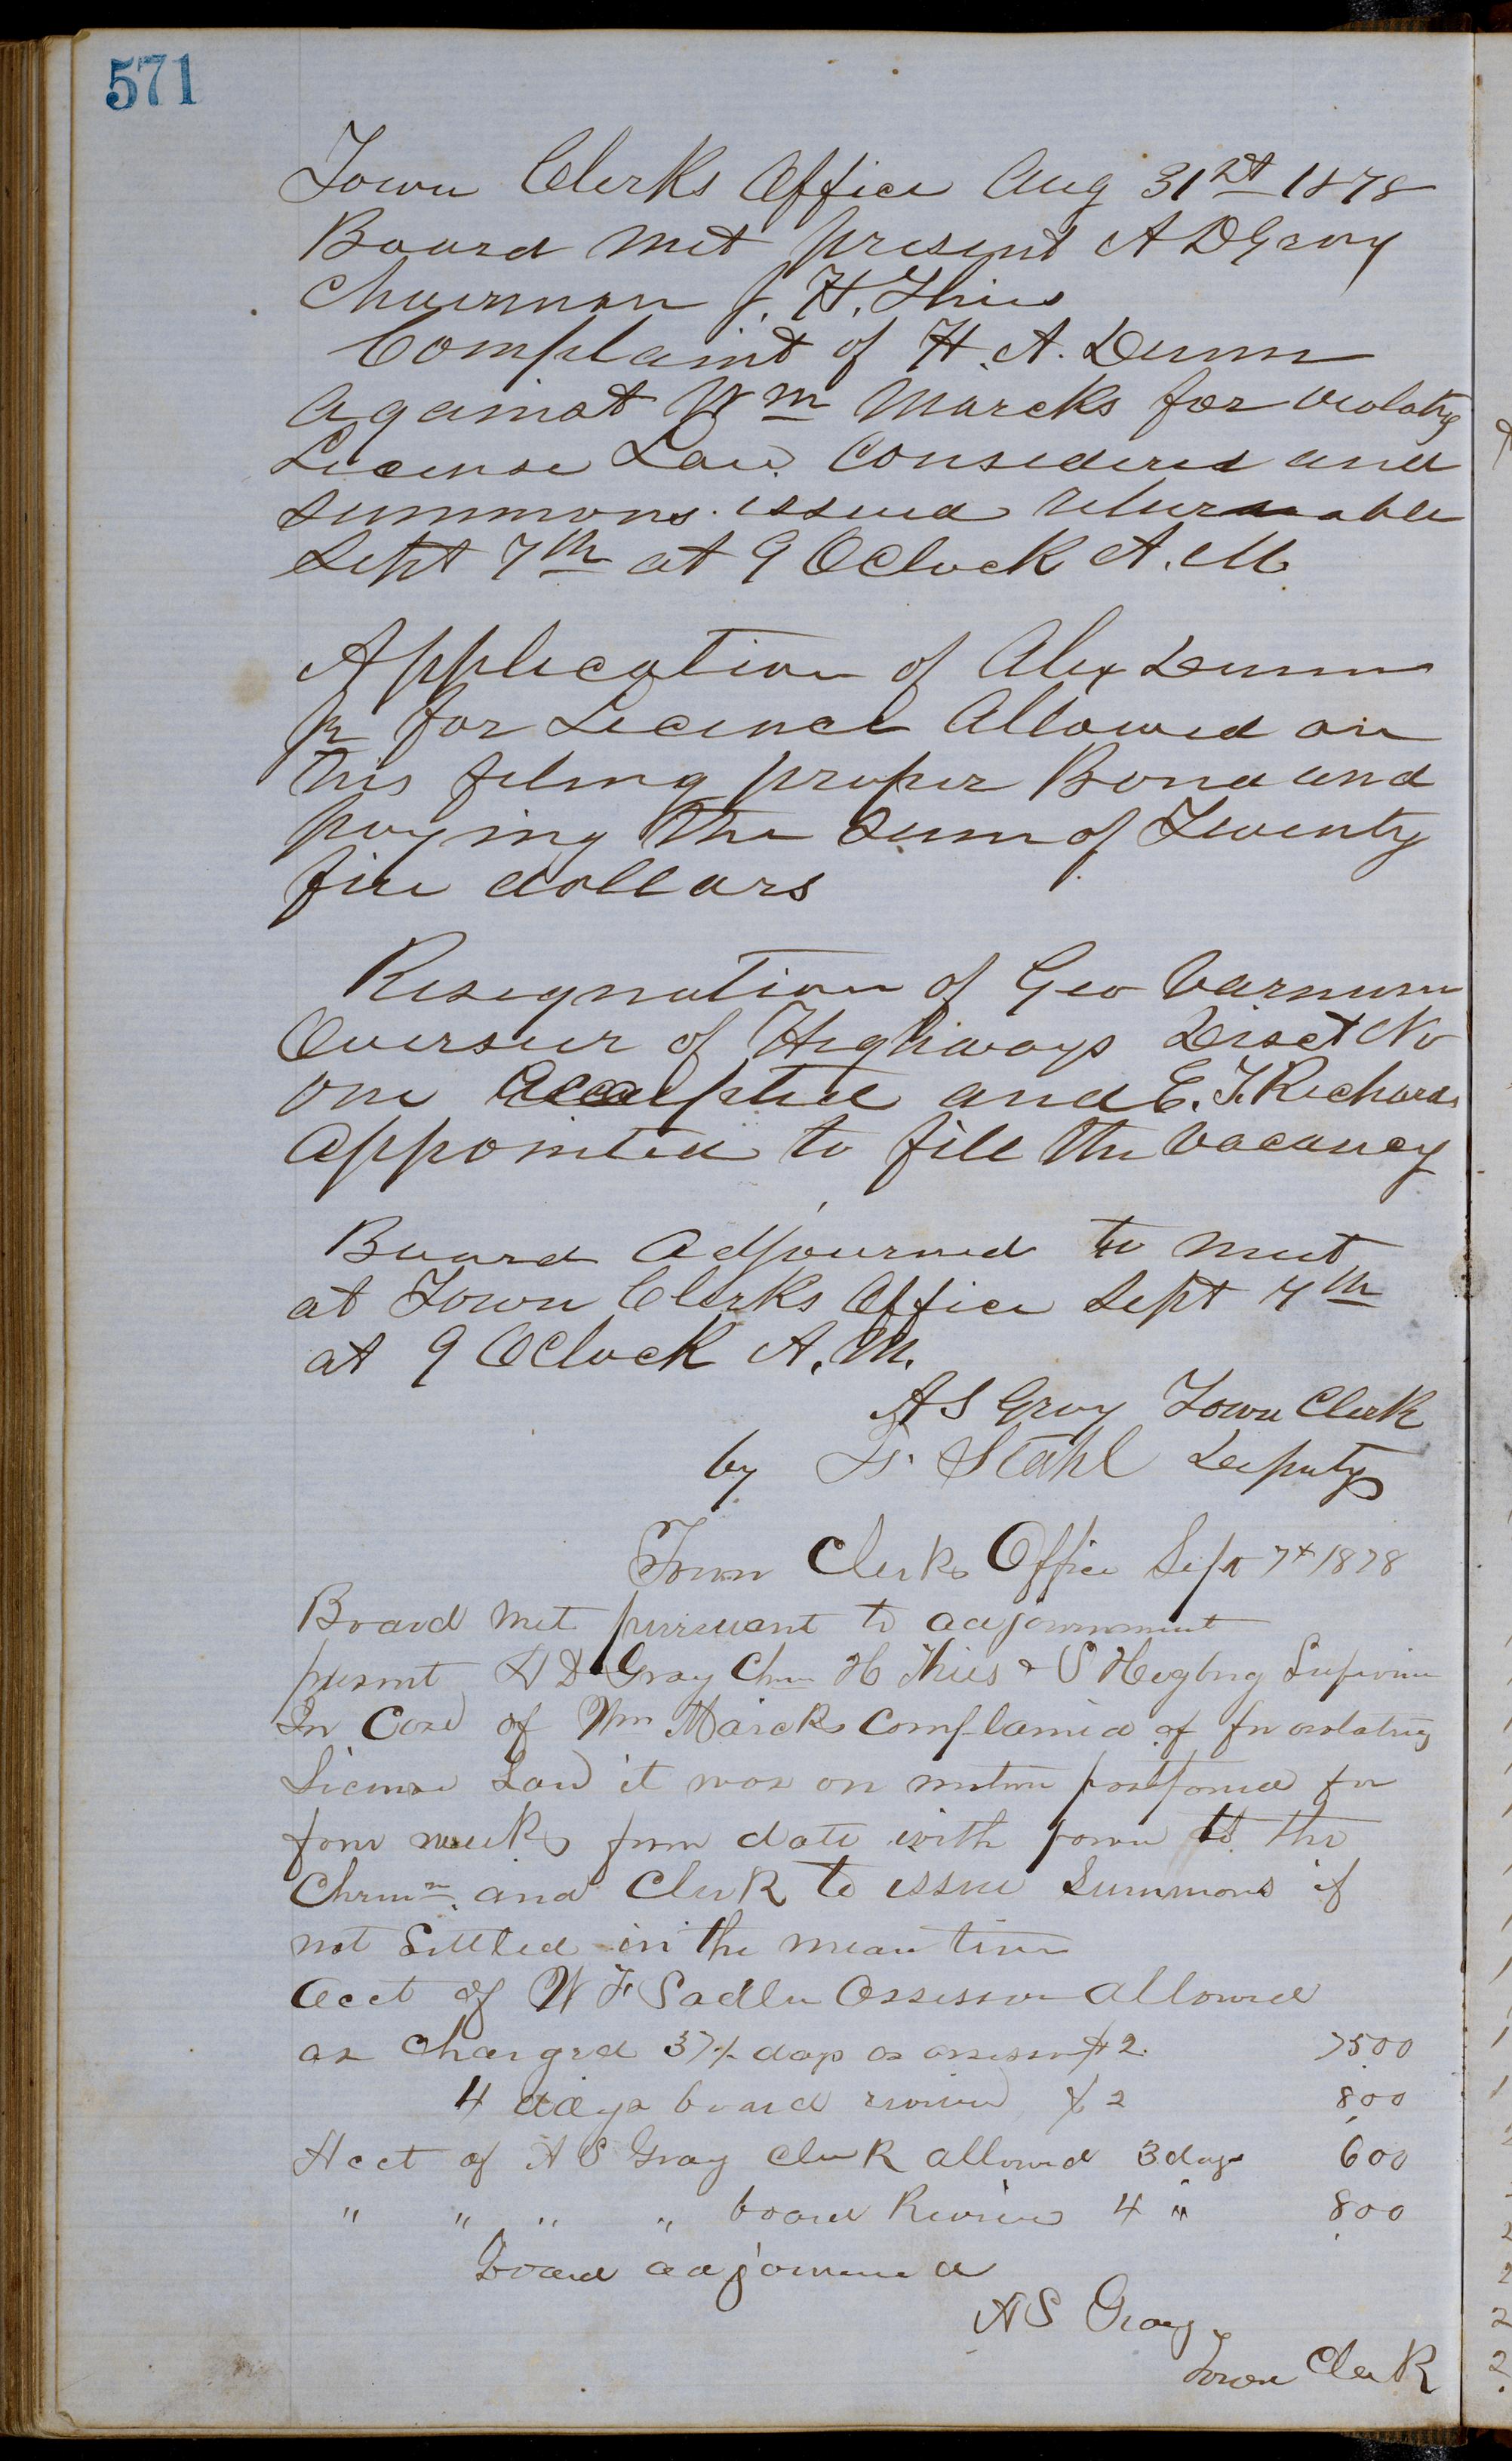 571
Town Clerks Office Aug 31st 1878
Board met present A D Gray
Chairman J. H. Thies
Complaint of H. A. Dunn
against Wm Marcks for violatig
License Law considered and
summons issued returnable
Sept 7th at 9 OClock A. M.
Application of Alex Dunn
Jr for Licence Allowed on
his filing proper Bond and
paying the sum of Twenty
five dollars
Resignation of Geo Varnum
Overseer of Highways Disct No
one accepted and E. T. Richards
appointed to fill the vacancy
Board adjourned to meet
at Town Clerks Office Sept 7th
at 9 OClock A. M.
A S Gray Town Clerk
by Stahl Deputy
Town Clerks Office Sept 7th 1878
Board met pursuant to adjournment
present A D Gray Chm H Thies & S
In Case of Wm Marcks complained of for violating
License Law it was on motion postponed for
four weeks from date with power to the
Chrmn and Clerk to issue Summons if
not Settled in the mean time
Acct of W F Sadler Assessor allowed
as charged 37½ days as assessor $2. 7500
4 days board review $2 800
Acct of A S Gray Clerk allowed 3 days 600
" " " " board Review 4 " 800
Board adjourned
A S Gray
Town Clerk